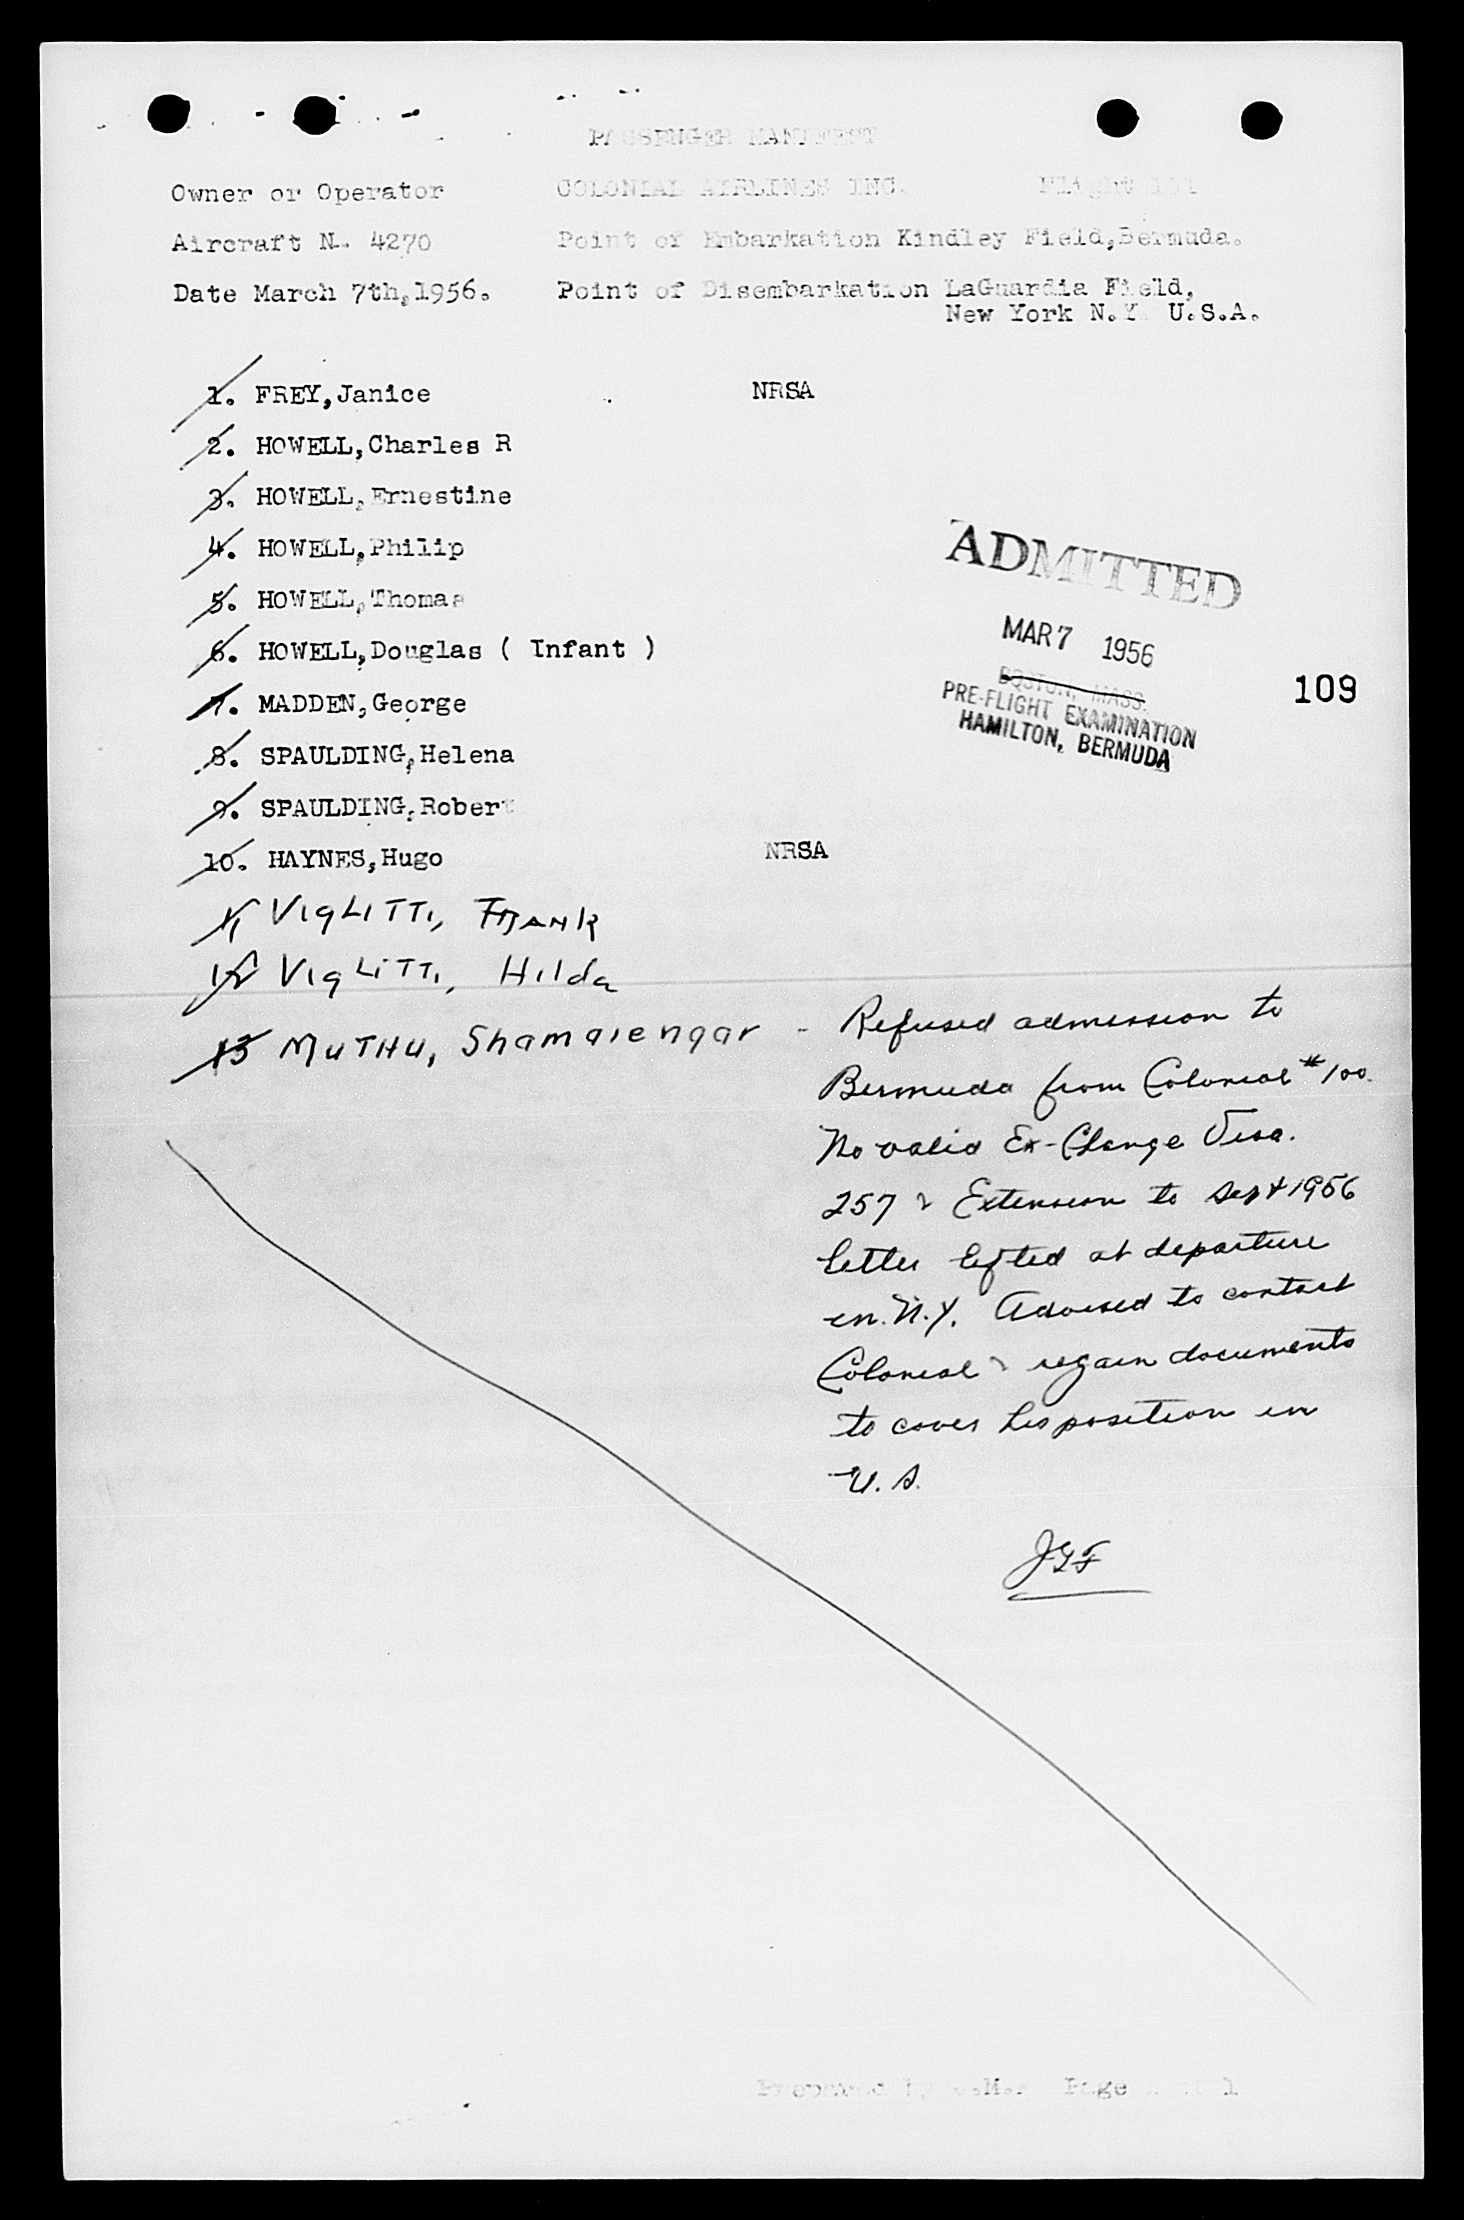 PASSENGER MANIFEST
Owner or Operator COLONIAL AIRLINES INC. Flight
Aircraft N. 4270 Point of Embarkation Kindley Field,Bermuda.
Date March 7th,1956. Point of Disembarkation LaGuardia Field,
New York N.Y. U.S.A.
1. FREY,Janice NRSA
2. HOWELL,Charles R
3. HOWELL,Ernestine
4. HOWELL,Philip
5. HOWELL,Thomas
6. HOWELL,Douglas ( Infant )
7. MADDEN,George
8. SPAULDING,Helena
9. SPAULDING,Robert
10. HAYNES,Hugo NRSA
ADMITTED
MAR 7 1956
BOSTON, MASS.
PRE-FLIGHT EXAMINATION
HAMILTON, BERMUDA
109
11 VIGLITTI, FRANK
12 VIGLITTI, Hilda
13 MUTHU, Shamaiengar - Refused admission to
Bermuda from Colonial #100.
No valid Ex-Change Visa.
257 & Extension to Sept 1956
letter lifted at departure
in N.Y. Advised to contact
Colonial & regain documents
to cover his position in
U.S.
JGF
Prepared by Page 1